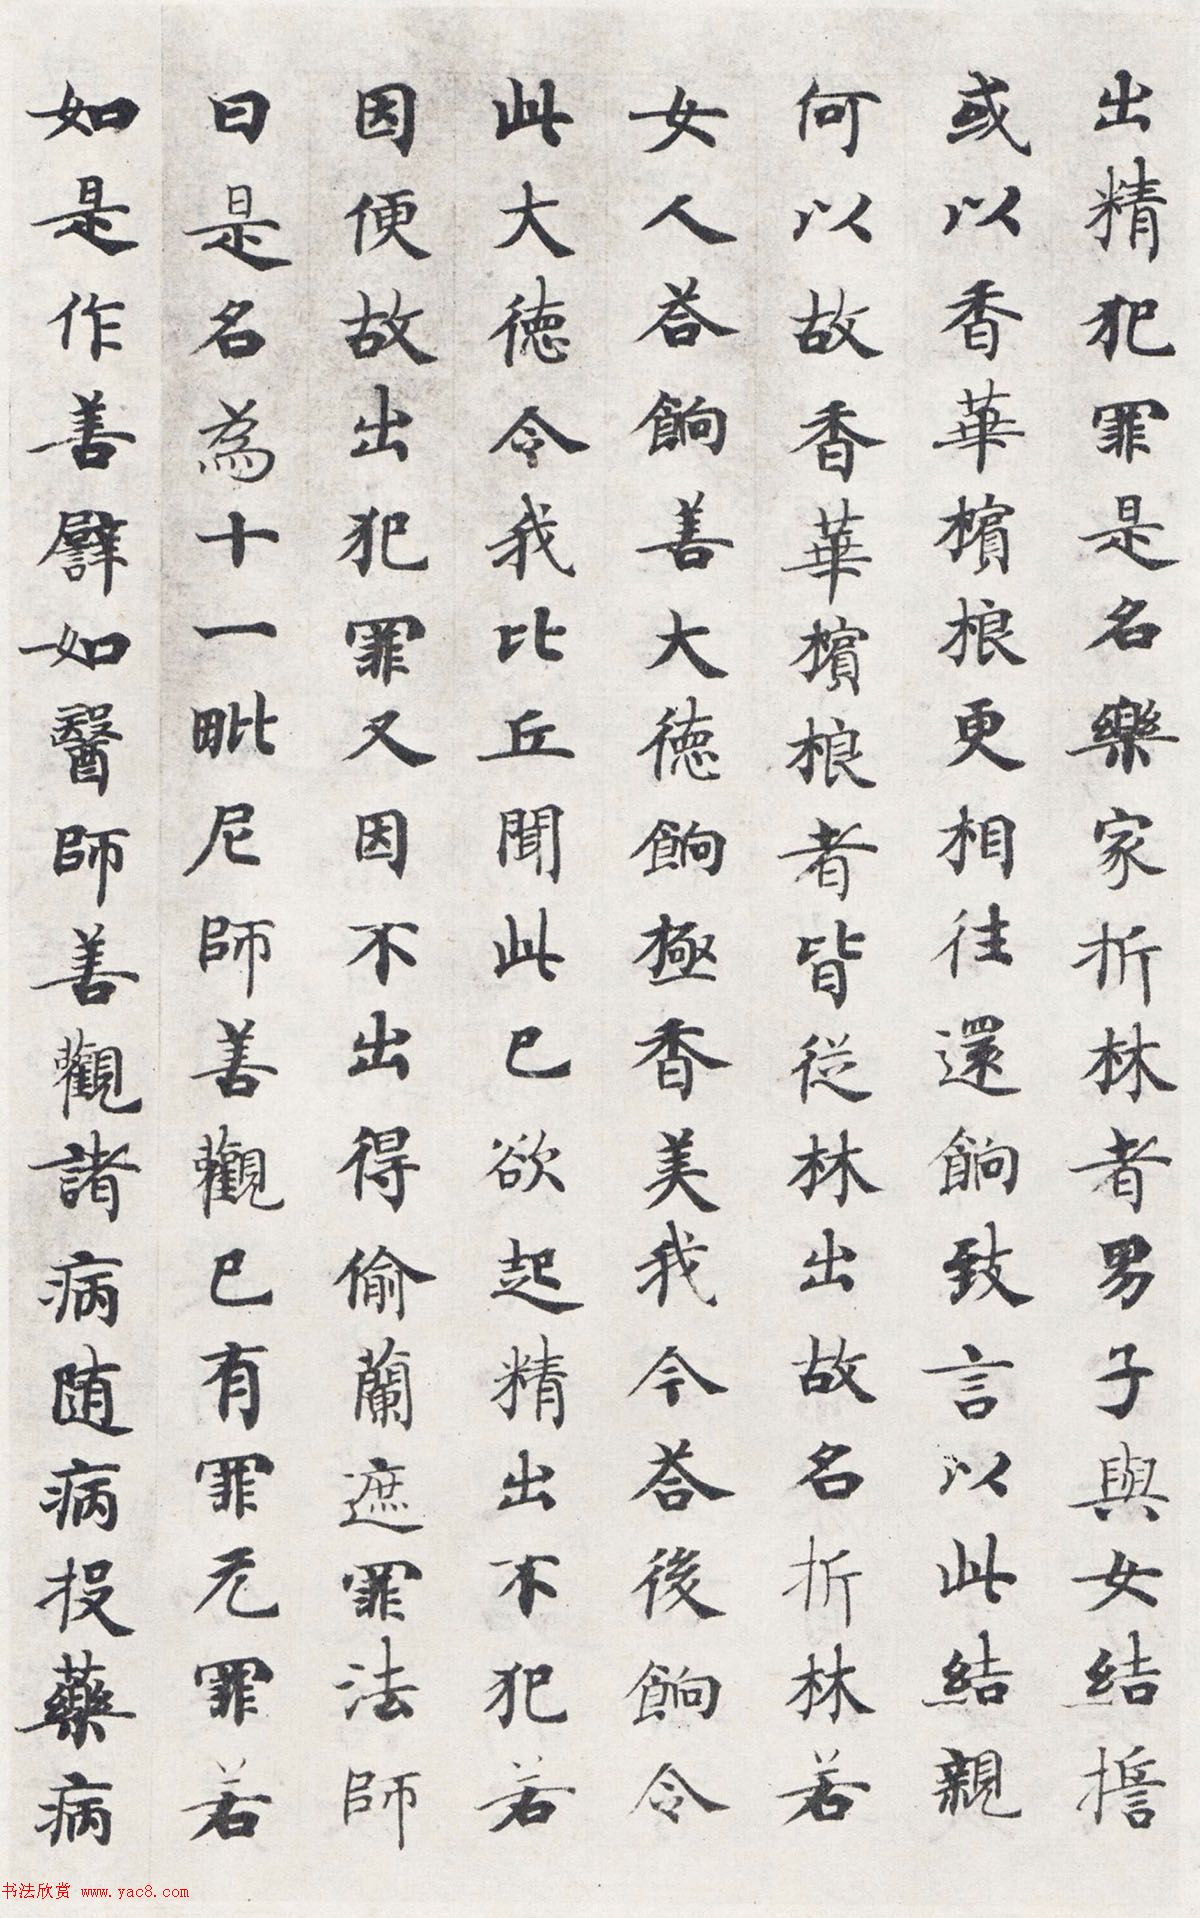 出精犯罪是名樂家折林者男子與女結擔
或以香華檳桹更相往還餉致言以此結親
何以故香華檳桹者皆從林出故名折林若
女人荅餉善大德餉極香美我今荅後餉令
此大德令我比丘聞此已欲起精出不犯若
因便故出犯罪又因不出得偷蘭遮罪法師
曰是名為十一毗尼師善觀已有罪无罪若
如是作善譬如醫師善觀諸病随病投藥病
书法欣赏 www.yac8.com